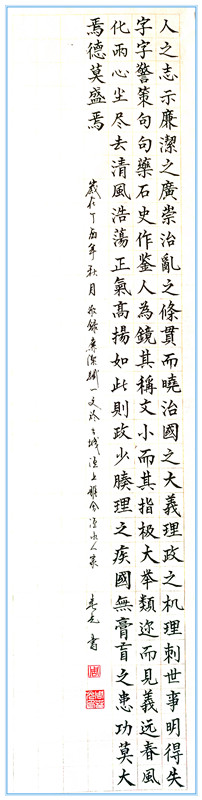 人之志示廉潔之廣崇治亂之條貫而曉治國之大義理政之机理刺世事明得失
字字警策句句藥石史作鉴人為鏡其稱文小而其指极大举類迩而見義远春風
化雨心尘尽去清風浩蕩正氣高揚如此則政少腠理之疾國無膏肓之患功莫大
焉德莫盛焉
歲在丁酉年秋月
書